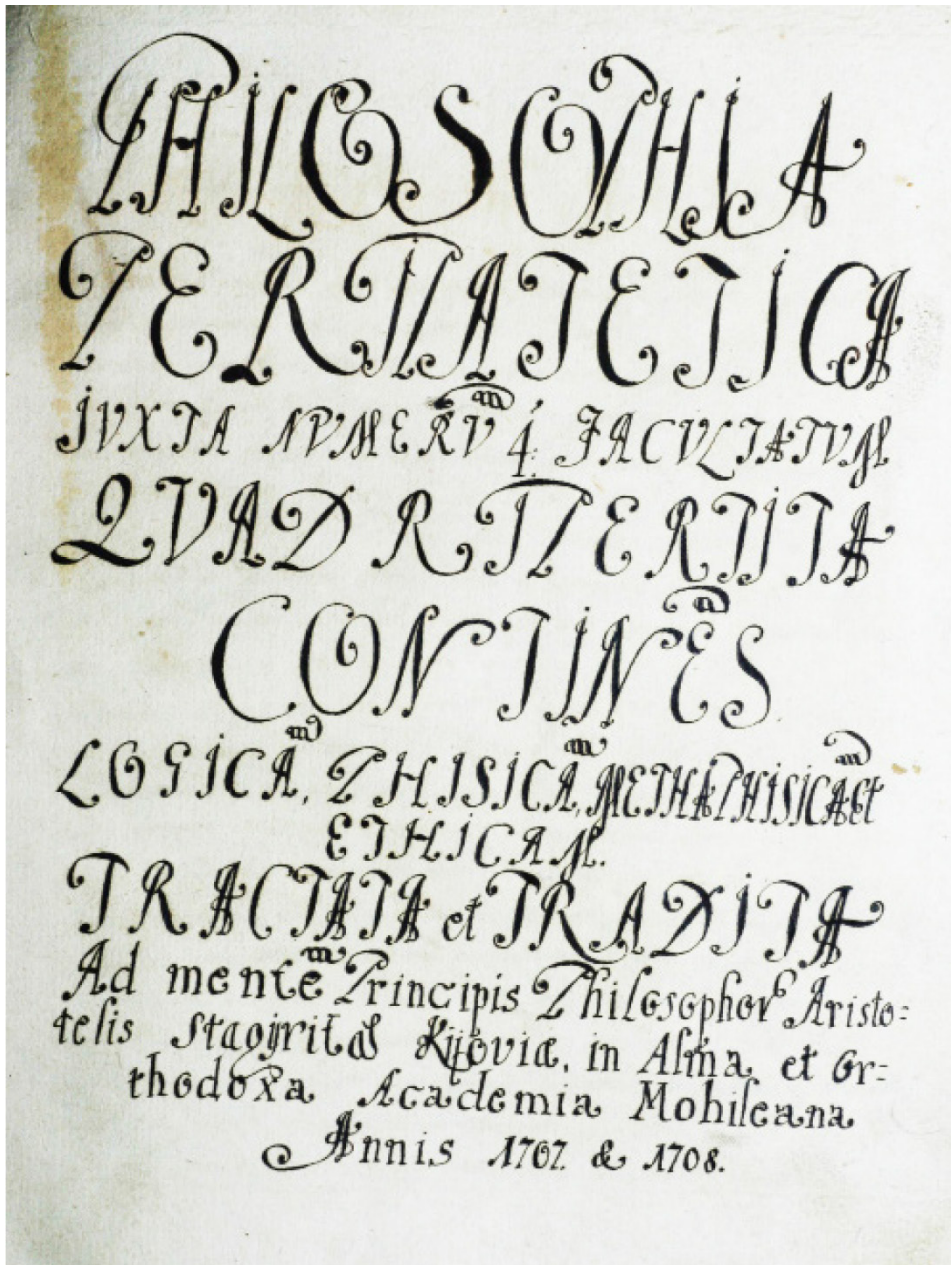 PHILOSOPHIA
PERIPATETICA
JUXTA NUMERŪ 4. FACULTATUM
QVADRIPERTITA
CONTINĒS
LOGICĀ, PHISICĀ, METHAPHISICĀ et
ETHICAM.
TRACTATA et TRADITA
Ad mentē Principis Philosophor Aristo=
telis Stagiritæ Kijoviæ, in Alma et Or=
thodoxa Academia Mohileana
Annis 1707. & 1708.